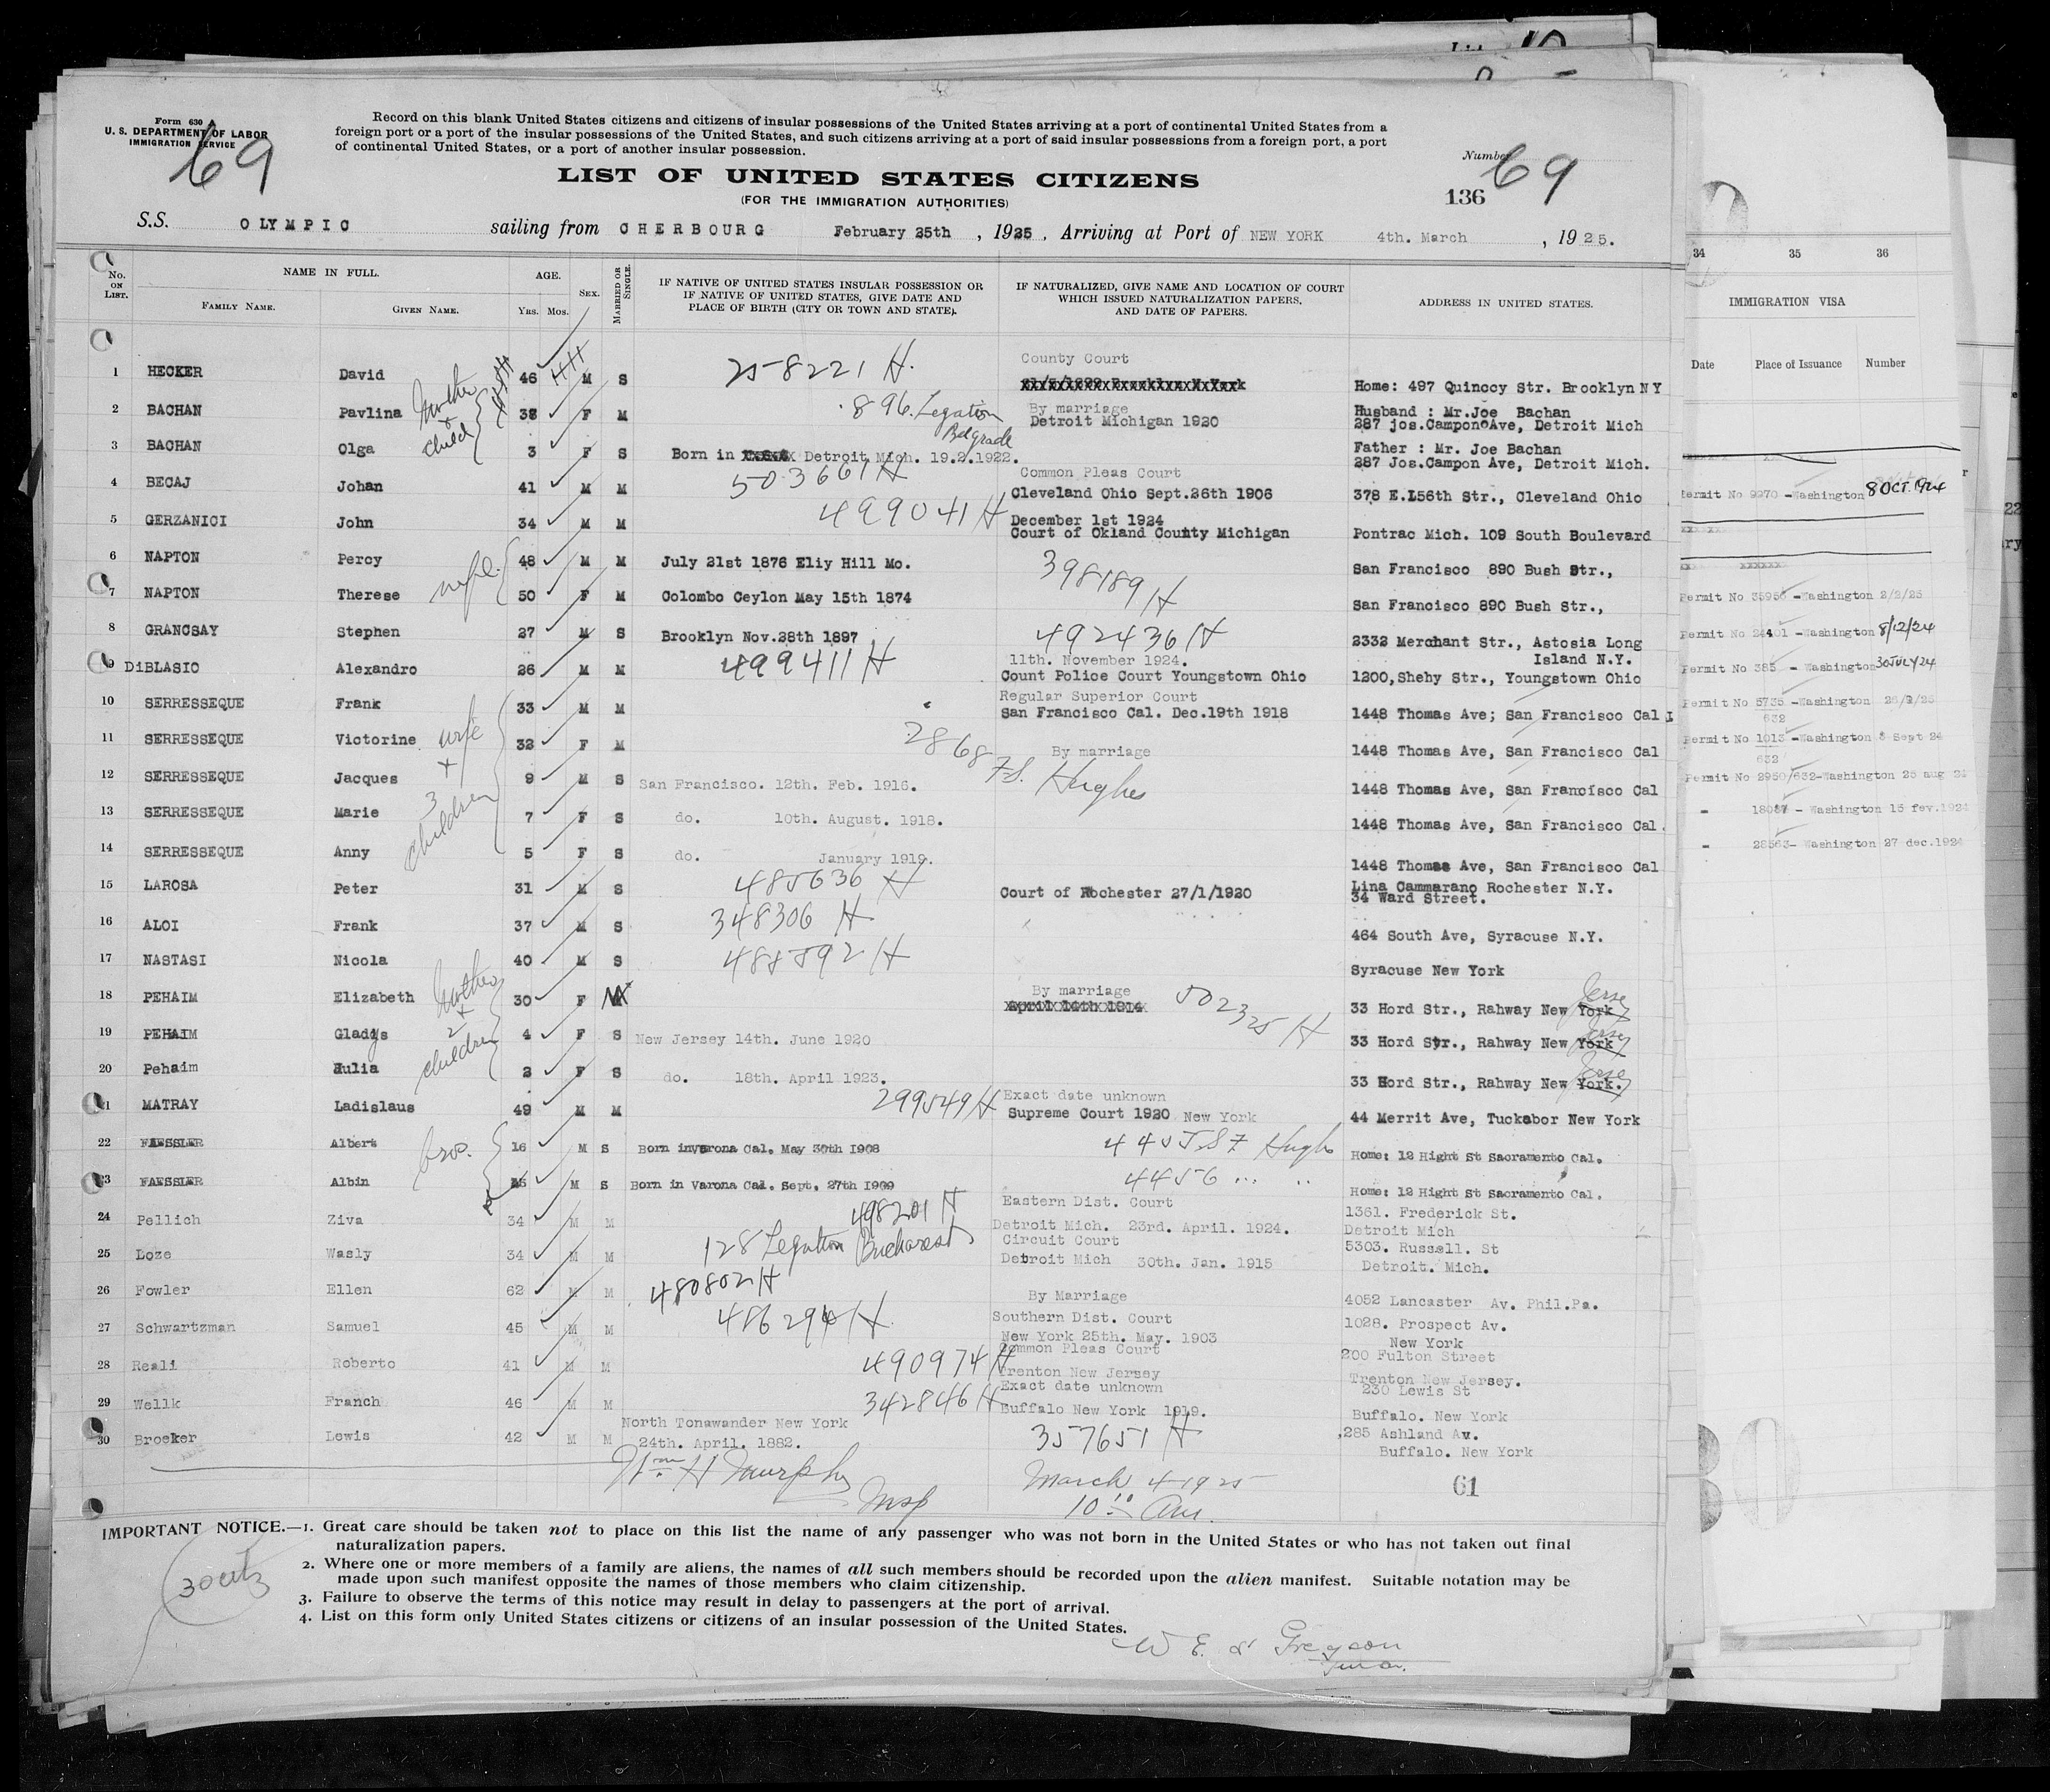 Form 630
U. S. DEPARTMENT OF LABOR
IMMIGRATION SERVICE
69
Record on this blank United States citizens and citizens of insular possessions of the United States arriving at a port of continental United States from a
foreign port or a port of the insular possessions of the United States, and such citizens arriving at a port of said insular possessions from a foreign port, a port
of continental United States, or a port of another insular possession.
Number 69
136
LIST OF UNITED STATES CITIZENS
(FOR THE IMMIGRATION AUTHORITIES)
S.S. OLYMPIC sailing from CHERBOURG February 25th , 1925 , Arriving at Port of NEW YORK 4th. March , 1925.
No. ON LIST. NAME IN FULL. FAMILY NAME. GIVEN NAME. AGE. Yrs. Mos. SEX. MARRIED OR SINGLE.
IF NATIVE OF UNITED STATES INSULAR POSSESSION OR
IF NATIVE OF UNITED STATES, GIVE DATE AND
PLACE OF BIRTH (CITY OR TOWN AND STATE).
IF NATURALIZED, GIVE NAME AND LOCATION OF COURT
WHICH ISSUED NATURALIZATION PAPERS,
AND DATE OF PAPERS.
ADDRESS IN UNITED STATES.
34 35 36
IMMIGRATION VISA
Date Place of Issuance Number
1 HECKER David 46 M S 258221 H. County Court Home: 497 Quinccy Str. Brooklyn N Y
2 BACHAN Pavlina Mother + child 38 F M 896. Legation Belgrade By marriage
Detroit Michigan 1920 Husband : Mr.Joe Bachan
287 jos.Campon Ave, Detroit Mich
3 BACHAN Olga 3 F S Born in Detroit Mich. 19.2.1922. Father : Mr. Joe Bachan
287 Jos.Campon Ave, Detroit Mich.
4 BECAJ Johan 41 M M 503661 H Common Pleas Court
Cleveland Ohio Sept.26th 1906 378 E.156th Str., Cleveland Ohio
5 GERZANICI John 34 M M 499041 H December 1st 1924
Court of Okland County Michigan Pontrac Mich. 109 South Boulevard
6 NAPTON Percy 48 M M July 21st 1876 Eliy Hill Mo. 398189 H San Francisco 890 Bush Str.,
7 NAPTON Therese wife. 50 F M Colombo Ceylon May 15th 1874 San Francisco 890 Bush Str.,
8 GRANCSAY Stephen 27 M S Brooklyn Nov.28th 1897 492436 H 2332 Merchant Str., Astosia Long
Island N.Y.
9 DiBLASIO Alexandro 26 M M 499411 H 11th. November 1924.
Count Police Court Youngstown Ohio 1200,Shehy Str., Youngstown Ohio
10 SERRESSEQUE Frank 33 M M Regular Superior Court
San Francisco Cal. Dec.19th 1918 1448 Thomas Ave; San Francisco Cal
11 SERRESSEQUE Victorine wife + 3 children 32 F M 2868 By marriage 1448 Thomas Ave, San Francisco Cal
12 SERRESSEQUE Jacques 9 M S San Francisco. 12th. Feb. 1916. Hughes 1448 Thomas Ave, San Francisco Cal
13 SERRESSEQUE Marie 7 F S do. 10th. August. 1918. 1448 Thomas Ave, San Francisco Cal.
14 SERRESSEQUE Anny 5 F S do. January 1919. 1448 Thomas Ave, San Francisco Cal
15 LAROSA Peter 31 M S 485636 H Court of Rochester 27/1/1920 Lina Cammarano Rochester N.Y.
34 Ward Street.
16 ALOI Frank 37 M S 348306 H 464 South Ave, Syracuse N.Y.
17 NASTASI Nicola 40 M S 488592 H Syracuse New York
18 PEHAIM Elizabeth Mother + 2 children 30 F M By marriage
April 14th 1914 502325 H 33 Hord Str., Rahway New York Jersey
19 PEHAIM Gladys 4 F S New Jersey 14th. June 1920 33 Hord Str., Rahway New York Jersey
20 Pehaim Julia 2 F S do. 18th. April 1923. 33 Hord Str., Rahway New York. Jersey
21 MATRAY Ladislaus 49 M M 299549 H Exact date unknown
Supreme Court 1920 New York 44 Merrit Ave, Tuckabor New York
22 FAESSLER Albert bros. 16 M S Born in Verona Cal. May 30th 1908 Home: 12 Hight St Sacramento Cal.
23 FAESSLER Albin M S Born in Varona Cal. Sept. 27th 1909 4456 Home: 12 Hight St Sacramento Cal.
24 Pellich Ziva 34 M M 498201 H Eastern Dist. Court
Detroit Mich. 23rd. April. 1924. 1361. Frederick St.
Detroit Mich
25 Loze Wasly 34 M M 128 Legation Bucharest Circuit Court
Detroit Mich 30th. Jan. 1915 5303. Russell. St
Detroit. Mich.
26 Fowler Ellen 62 M M 480802 H By Marriage 4052 Lancaster Av. Phil.Pa.
27 Schwartzman Samuel 45 M M 486294 H. Southern Dist. Court
New York 25th. May. 1903 1028. Prospect Av.
New York
28 Reali Roberto 41 M M 490974 H Common Pleas Court
Trenton New Jersey 200 Fulton Street
Trenton New Jersey.
29 Wellk Franch 46 M M 342846 H Exact date unknown
Buffalo New York 1919. 230 Lewis St
Buffalo. New York
30 Broeker Lewis 42 M M North Tonawander New York
24th. April. 1882. 357651 H 285 Ashland Av.
Buffalo. New York
Permit No 9970 -Washington 8 OCT. 1924
Permit No 35956 -Washington 2/2/25
Permit No 24401 -Washington 8/12/24
Permit No 385 - Washington 30 JULY 24
Permit No 5735 -Washington
632
Permit No 1013 -Washington 8 Sept 24
632
Permit No 2950/632-Washington 25 aug 24
" 18087 - Washington 15 fev.1924
" 28563- Washington 27 dec.1924
Wm H Murphy
Insp
March 4 1925
10 10 Am.
61
IMPORTANT NOTICE.—1. Great care should be taken not to place on this list the name of any passenger who was not born in the United States or who has not taken out final
naturalization papers.
2. Where one or more members of a family are aliens, the names of all such members should be recorded upon the alien manifest. Suitable notation may be
made upon such manifest opposite the names of those members who claim citizenship.
3. Failure to observe the terms of this notice may result in delay to passengers at the port of arrival.
4. List on this form only United States citizens or citizens of an insular possession of the United States.